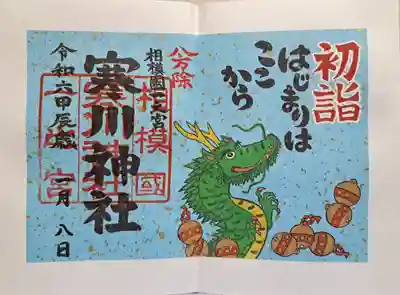 初詣
はじまりは
ここ
から
八方除
相模國一之宮
寒川神社
相模國
令和六甲辰歳 一月八日